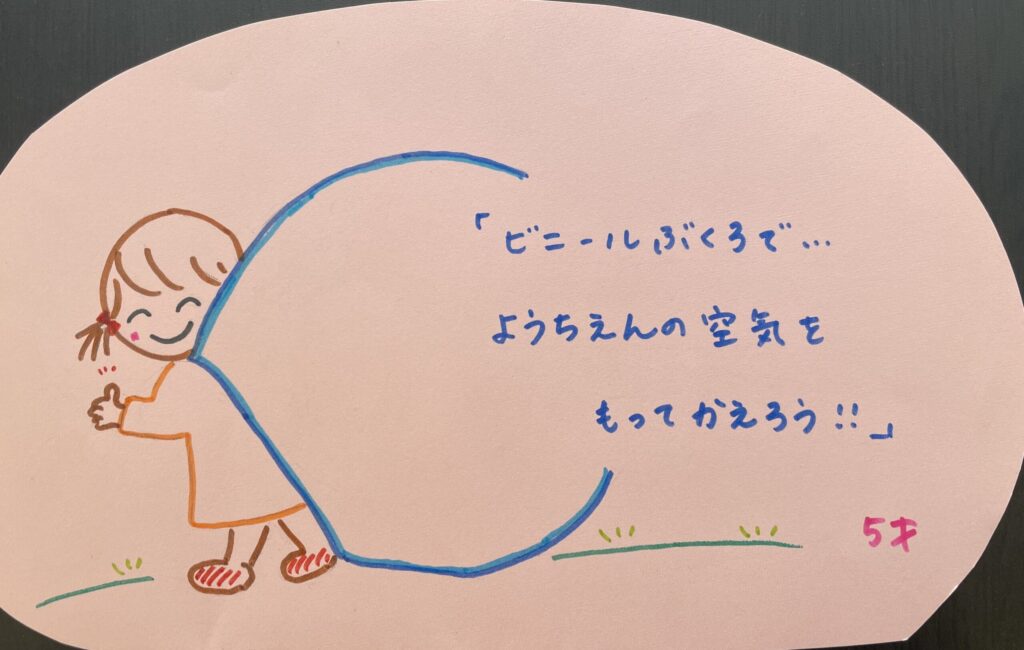 「ビニールぶくろで…
ようちえんの空気を
もってかえろう!!」
5才